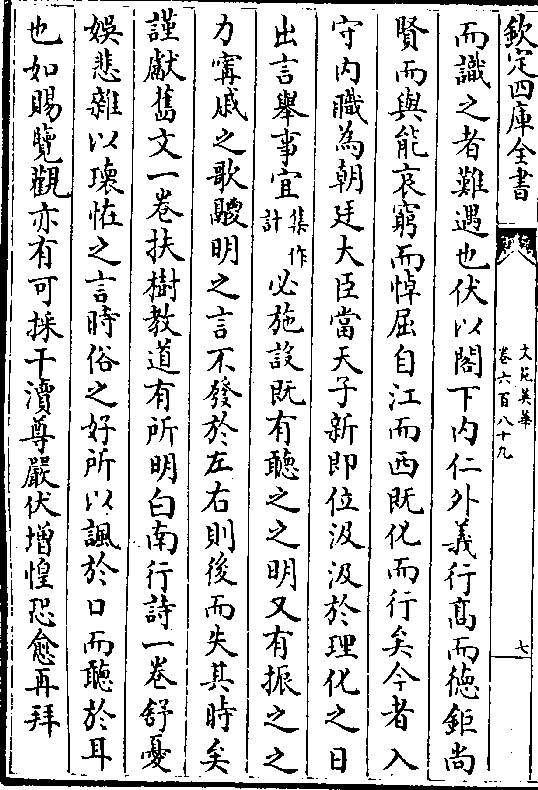 欽定四庫全書
文苑英華
卷六百八十九
七
而識之者難遇也伏以閣下内仁外義行髙而徳鉅尚
賢而與能哀窮而悼屈自江而西既化而行矣今者入
守内職為朝廷大臣當天子新即位汲汲於理化之日
出言舉事宜集作計必施設既有聽之之明又有振之之
力甯戚之歌鬷明之言不發於左右則後而失其時矣
謹獻舊文一卷扶樹教道有所明白南行詩一卷舒憂
娛悲雜以瓌恠之言時俗之好所以諷於口而聽於耳
也如賜覽觀亦有可採干瀆尊嚴伏增惶恐愈再拜